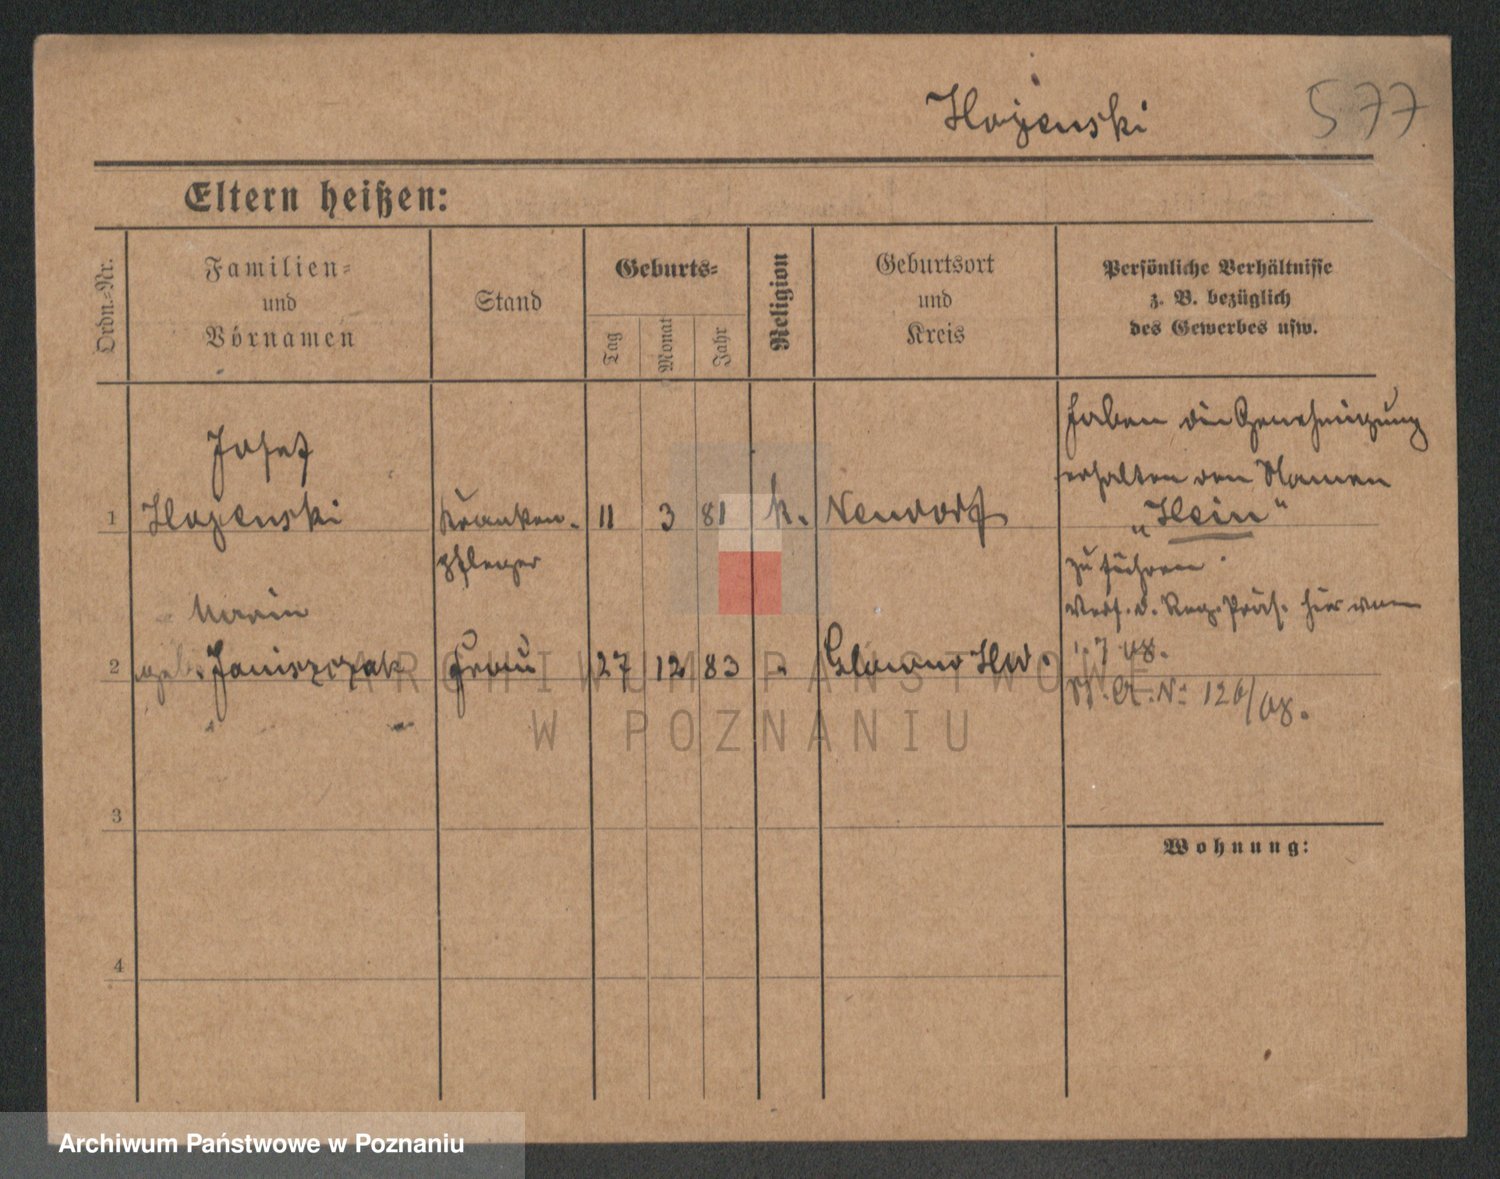 Hojenski 577
Eltern heißen:
Ordn.-Nr.
Familien-
und
Vornamen
Stand
Geburts-
Tag
Monat
Jahr
Religion
Geburtsort
und
Kreis
Persönliche Verhältnisse
z. B. bezüglich
des Gewerbes usw.
1
Josef
Hojenski
Kranken-
pfleger
11 3 81 k. Neudorf
haben die Genehmigung
erhalten den Namen
„Hein"
zu führen
Verf. d. Reg. Präs. hier vom
1.7.08.
N: 120/08.
2
Maria
geb. Janiszczak
Frau
27 12 83 "
3
4
Wohnung:
ARCHIWUM PAŃSTWOWE
W POZNANIU
Archiwum Państwowe w Poznaniu